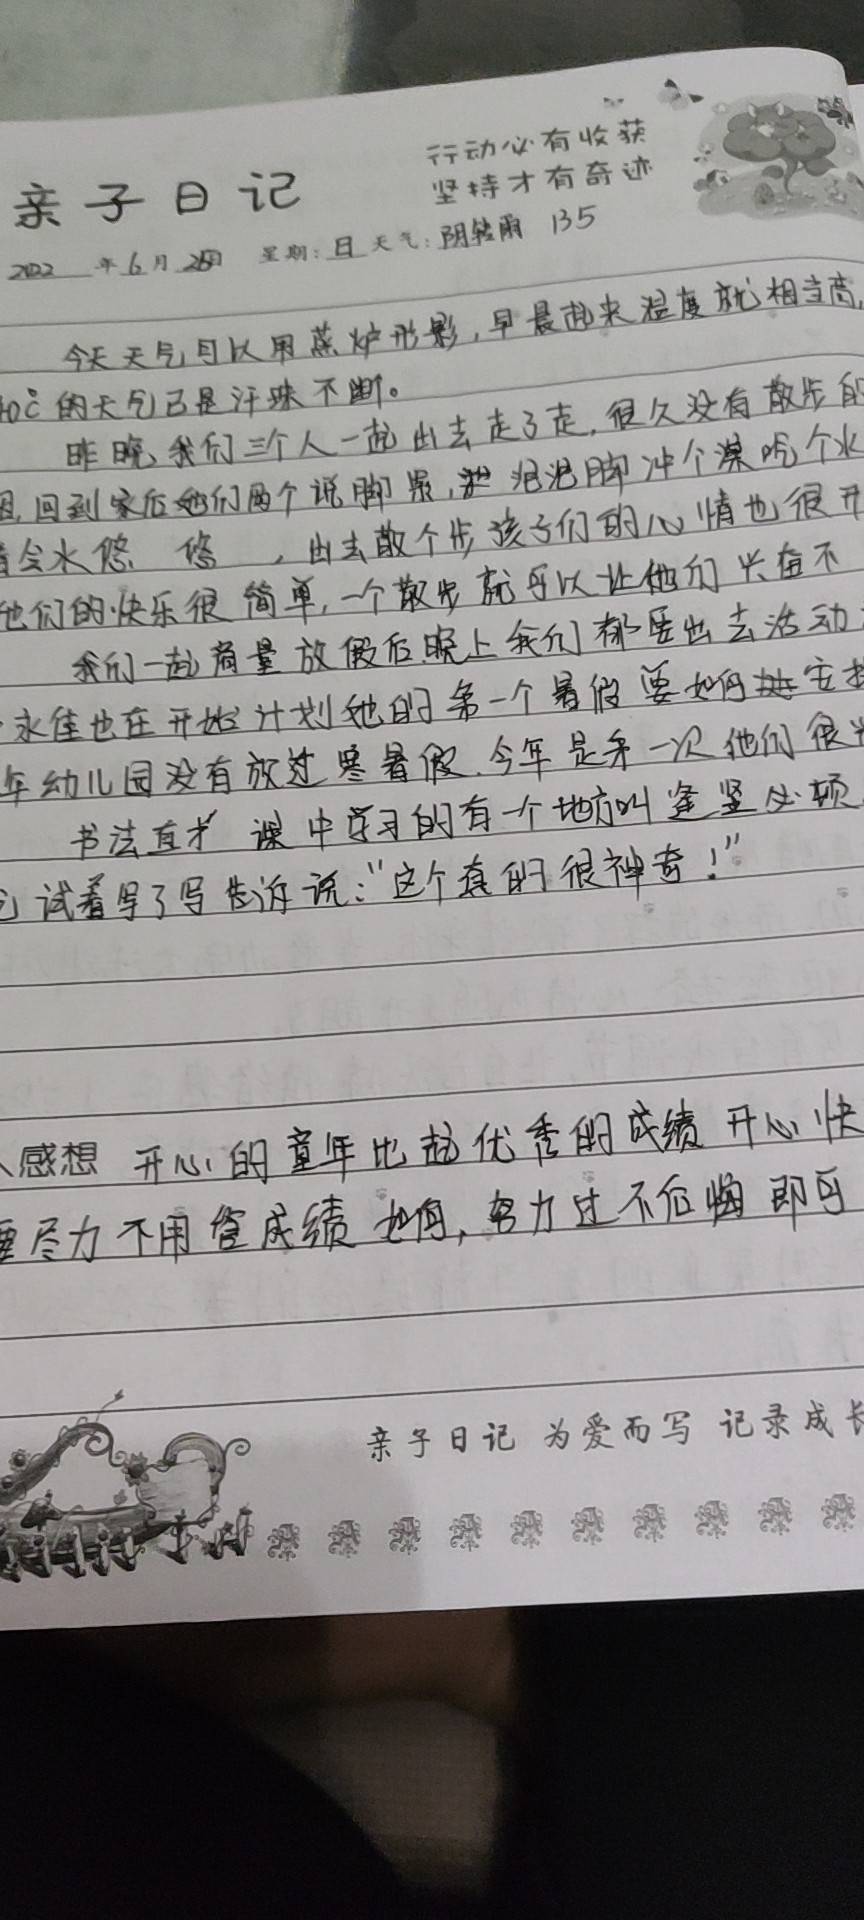 行动必有收获
坚持才有奇迹
亲子日记
2022年6月26日 星期:日 天气:阴转雨 135
今天天气可以用蒸炉形影,早晨起来温度就相当高,
40℃的天气已是汗珠不断。
昨晚我们三个人一起出去走了走,很久没有散步的
回到家后她们两个说脚累,泡泡脚冲个澡吃个水
会水悠 悠 ,出去散个步孩子们的心情也很开
他们的快乐很简单,一个散步就可以让他们兴奋不
我们一起商量放假后晚上我们都要出去活动
永佳也在开始计划她的第一个暑假要如何安排
年幼儿园没有放过寒暑假.今年是第一次他们很兴
书法直播课中学习的有一个地方叫逢竖必顿
试着写了写告诉说:“这个真的很神奇!”
感想 开心的童年比起优秀的成绩开心快
要尽力不用管成绩如何,努力过不后悔即可
亲子日记 为爱而写 记录成长